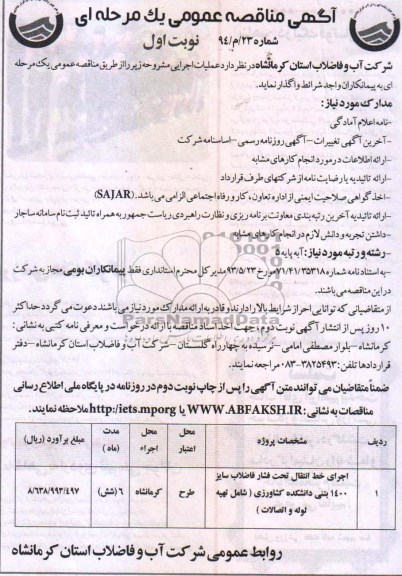 آگهی مناقصه عمومی یک مرحله ای
شماره ۲۳/م/۹۴ نوبت اول
شرکت آب و فاضلاب استان کرمانشاه در نظر دارد عملیات اجرایی مشروحه زیر را از طریق مناقصه عمومی یک مرحله
ای به پیمانکاران واجد شرایط واگذار نماید.
مدارک مورد نیاز:
-نامه اعلام آمادگی
-آخرین آگهی تغییرات -آگهی روزنامه رسمی -اساسنامه شرکت
-ارائه اطلاعات در مورد انجام کارهای مشابه
-ارائه تائیدیه یا رضایت نامه از شرکتهای طرف قرارداد
-اخذ گواهی صلاحیت ایمنی از اداره تعاون ، کار و رفاه اجتماعی الزامی می باشد. (SAJAR)
-ارائه تائیدیه آخرین رتبه بندی معاونت برنامه ریزی و نظارت راهبردی ریاست جمهور به همراه تائید ثبت نام سامانه ساجار
-داشتن تجربه و دانش لازم در انجام کارهای مشابه
-رشته و رتبه مورد نیاز: آبه پایه ۵
-به استناد نامه شماره ۷۱/۴۱/۳۵۳۱۸ مورخ ۹۳/۵/۲۳ مدیر کل محترم استانداری فقط پیمانکاران بومی مجاز به شرکت
در این مناقصه می باشند.
از متقاضیانی که توانایی احراز شرایط بالا را دارند و قادر به ارائه مدارک مورد نیاز می باشند دعوت می گردد حداکثر
۱۰ روز پس از انتشار آگهی نوبت دوم، جهت اخذ اسناد مناقصه با ارائه درخواست و معرفی نامه کتبی به نشانی :
کرمانشاه -بلوار مصطفی امامی -نرسیده به چهار راه گلستان -شرکت آب و فاضلاب استان کرمانشاه -دفتر
قراردادها تلفن: ۳۸۲۵۴۹۳-۰۸۳ مراجعه نمایند.
ضمناً متقاضیان می توانند متن آگهی را پس از چاپ نوبت دوم در روزنامه در پایگاه ملی اطلاع رسانی
مناقصات به نشانی : WWW.ABFAKSH.IR یا http:/iets.mporg ملاحظه نمایند.
ردیف مشخصات پروژه محل اعتبار محل اجراء مدت (ماه) مبلغ برآورد (ریال)
۱ اجرای خط انتقال تحت فشار فاضلاب سایز ۱۴۰۰ بتنی دانشکده کشاورزی ( شامل تهیه لوله و اتصالات ) طرح کرمانشاه ۶ (شش) ۸/۶۳۸/۹۹۳/۴۹۷
روابط عمومی شرکت آب و فاضلاب استان کرمانشاه